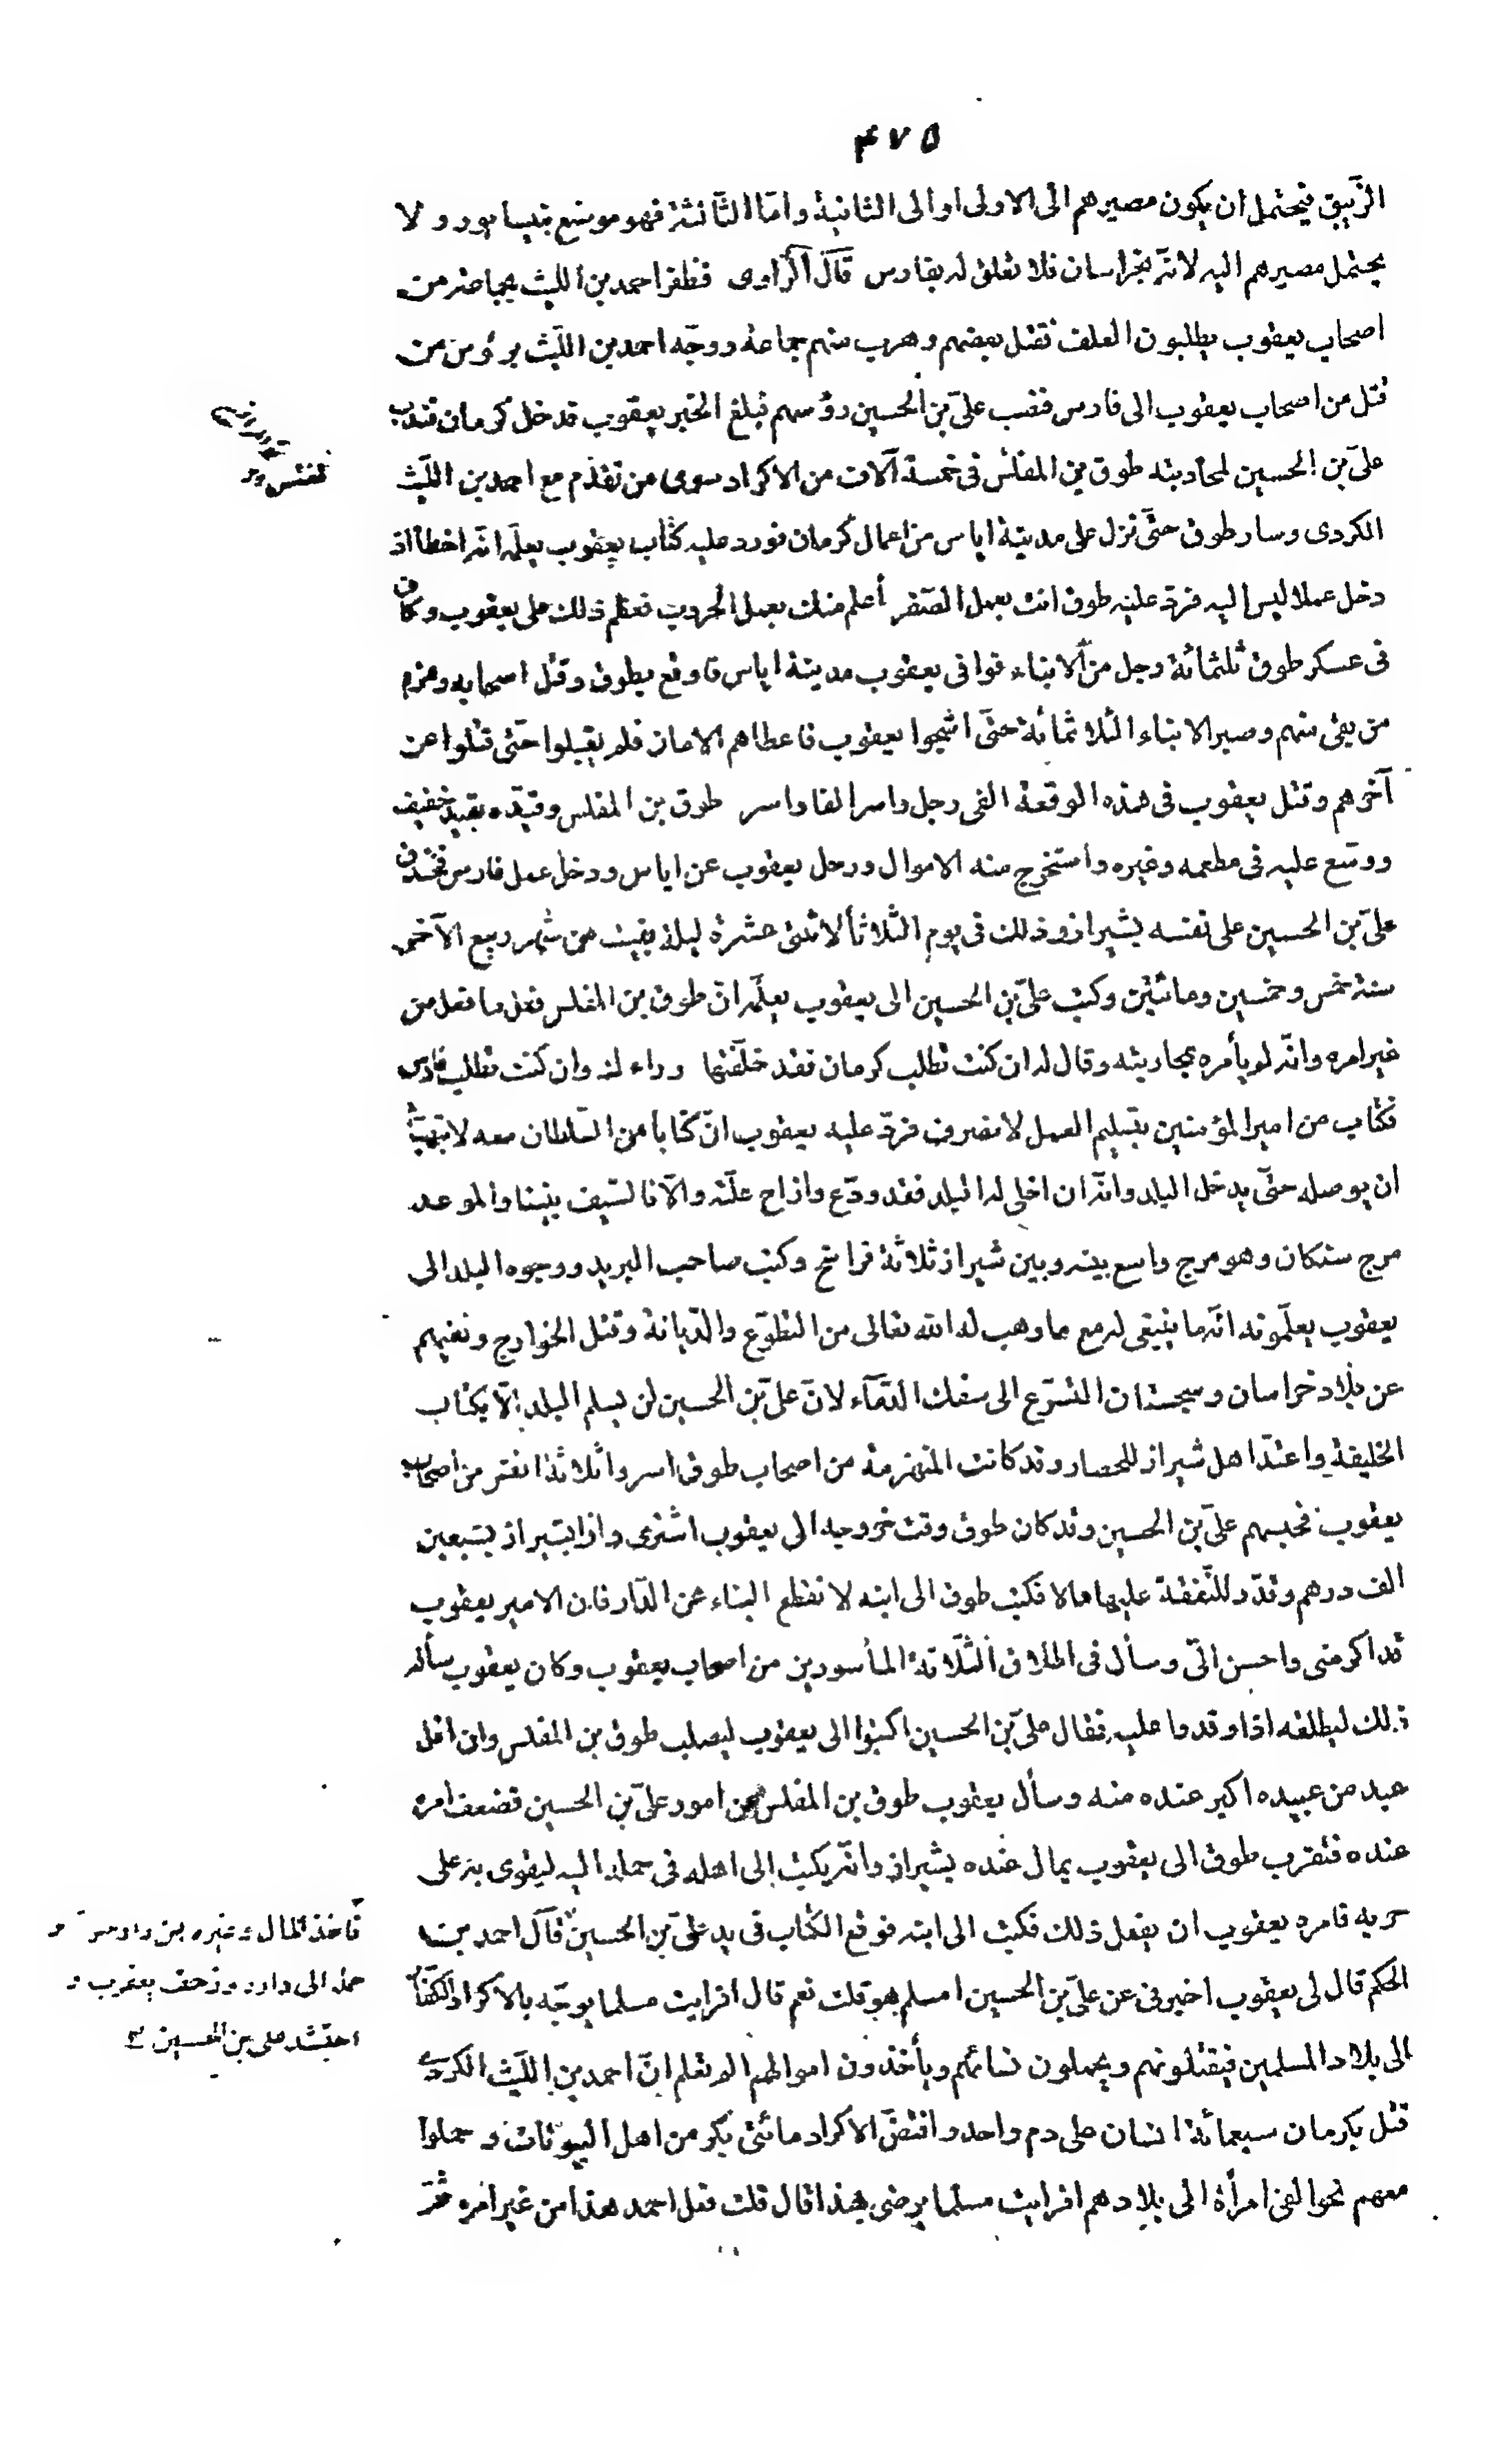 ۴۷۵
الزيبق فيحتمل ان يكون مصيرهم الى الاولى او الى الثانية وامّا الثّالثة فهو موضع بنيسابور ولا
يحتمل مصيرهم اليه لانّه بخراسان فلا تعلق له بفارس قال الرّاوى فظفر احمد بن الليث بجماعة من
اصحاب يعقوب يطلبون العلف فقتل بعضهم وهرب منهم جماعة ووجّه احمد بن اللّيث برؤس من
قتل من اصحاب يعقوب الى فارس فنصب علىّ بن الحسين رؤسهم فبلغ الخبر يعقوب فدخل كرمان فندب
علىّ بن الحسين لمحاربته طوق بن المغلّس فى خمسة آلاف من الاكراد سوى من تقدّم مع احمد بن اللّيث
الكردى وسار طوق حتّى نزل على مدينة اياس من اعمال كرمان فورد عليه كتاب يعقوب يعلمه انّه اخطأ اذ
دخل عملا ليس اليه فردّ عليه طوق انت بعمل الصّفر أعلم منك بعمل الحروب فعظم ذلك على يعقوب وكان
فى عسكر طوق ثلثمائة رجل من الابناء فوافى يعقوب مدينة اياس فاوقع بطوق وقتل اصحابه وهزم
من بقى منهم وصبر الابناء الثلاثمائة حتّى اشجوا يعقوب فاعطاهم الامان فلم يقبلوا حتّى قتلوا عن
آخرهم وقتل يعقوب فى هذه الوقعة الفى رجل واسر الفا واسر طوق بن المغلس وقيّده بقيد خفيف
ووسّع عليه فى مطعمه وغيره واستخرج منه الاموال ورحل يعقوب عن اياس ودخل عمل فارس فخندق
علىّ بن الحسين على نفسه بشيراز وذلك فى يوم الثّلاثأ لاثنتى عشرة ليلة بقيت من شهر ربيع الآخر
سنة خمس وخمسين ومائتين وكتب علىّ بن الحسين الى يعقوب يعلمه انّ طوق بن المغلس فعل ما فعل من
غير امره وانّه لم يأمره بمحاربته وقال له ان كنت تطلب كرمان فقد خلّفتها وراءك وان كنت تطلب فارس
فكتاب من امير المؤمنين بتسليم العمل لانصرف فردّ عليه يعقوب انّ كتابا من السّلطان معه لا يتهيّأ
ان يوصله حتّى يدخل البلد وانّه ان اخلى له البلد فقد ودّع وازاح علّته والّا فالسّيف بيننا والموعد
مرج سنكان وهو مرج واسع بينه وبين شيراز ثلاثة فراسخ وكتب صاحب البريد ووجوه البلد الى
يعقوب يعلّمونه انّه ما ينبغى له مع ما وهب له الله تعالى من التطوّع والدّيانة وقتل الخوارج ونفيهم
عن بلاد خراسان وسجستان التسرّع الى سفك الدّماء لانّ علىّ بن الحسين لن يسلم البلد الّا بكتاب
الخليفة واعتدّ اهل شيراز للحصار وقد كانت المنهزمة من اصحاب طوق اسروا ثلاثة انفر من اصحاب
يعقوب فحبسهم علىّ بن الحسين وقد كان طوق وقت خروجه الى يعقوب اشترى دارا بشيراز بسبعين
الف درهم وقدّر للنّفقة عليها مالا فكتب طوق الى ابنه لا تقطع البناء عن الدّار فان الامير يعقوب
قد اكرمنى واحسن الىّ وسأل فى اطلاق الثّلاثة المأسورين من اصحاب يعقوب وكان يعقوب سأله
ذلك ليطلقه اذا وفدوا عليه فقال علىّ بن الحسين اكتبوا الى يعقوب ليصلب طوق بن المغلس وان اقل
عبد من عبيده اكبر عنده منه وسأل يعقوب طوق بن المغلس عن امور علىّ بن الحسين فضعف امره
عنده فتقرب طوق الى يعقوب بمال عنده بشيراز وانّه يكتب الى اهله فى حمله اليه ليقوى به على
حربه فامره يعقوب ان يفعل ذلك فكتب الى ابنه فوقع الكتاب فى يد علىّ بن الحسين قال احمد بن
الحكم قال لى يعقوب اخبرنى عن علىّ بن الحسين امسلم هو قلت نعم قال افرايت مسلما يوجّه بالاكراد الكفّار
الى بلاد المسلمين فيقتلونهم ويحملون نسائهم ويأخذون اموالهم الم تعلم انّ احمد بن اللّيث الكردى
قتل بكرمان سبعمائة انسان على دم واحد وافتضّ الاكراد مائتى بكر من اهل البيوتات وحملوا
معهم نحو الفى امرأة الى بلادهم افرايت مسلما يرضى بهذا قال قلت فعل احمد هذا من غير امره ثمّ
فاخذ المال وغيره من داره و
حمله الى داره وزحف يعقوب و
احتشد على بن الحسين